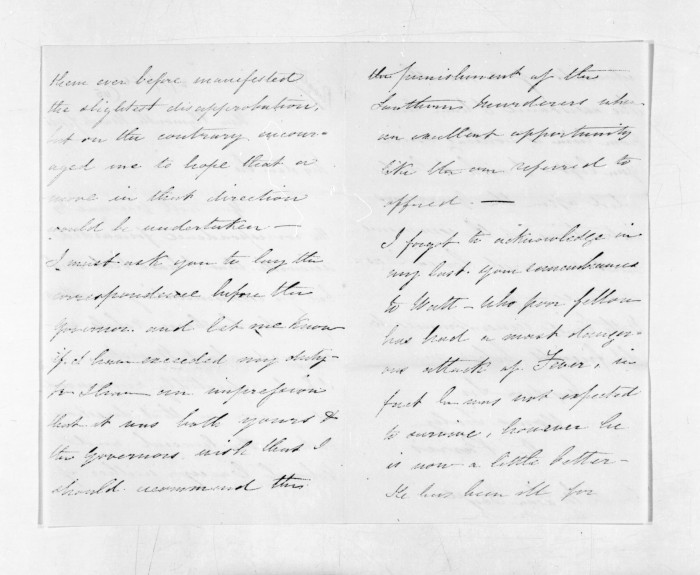 them ever before manifested
the slightest disapprobation,
but on the contrary encour-
aged me to hope that a
move in that direction
would be undertaken —
I must ask you to lay the
correspondence before the
Governor and let me know
if I have exceeded my duty-
for I have an impression
that it was both yours &
the Governors wish that I
should recommend this
the punishment of the
Southern murderers when
an excellent opportunity
like the one referred to
offered. —
I forgot to acknowledge in
my last your remembrances
to Watt - who poor fellow
has had a most danger-
ous attack of Fever, in
fact he was not expected
to survive, however he
is now a little better -
He has been ill for